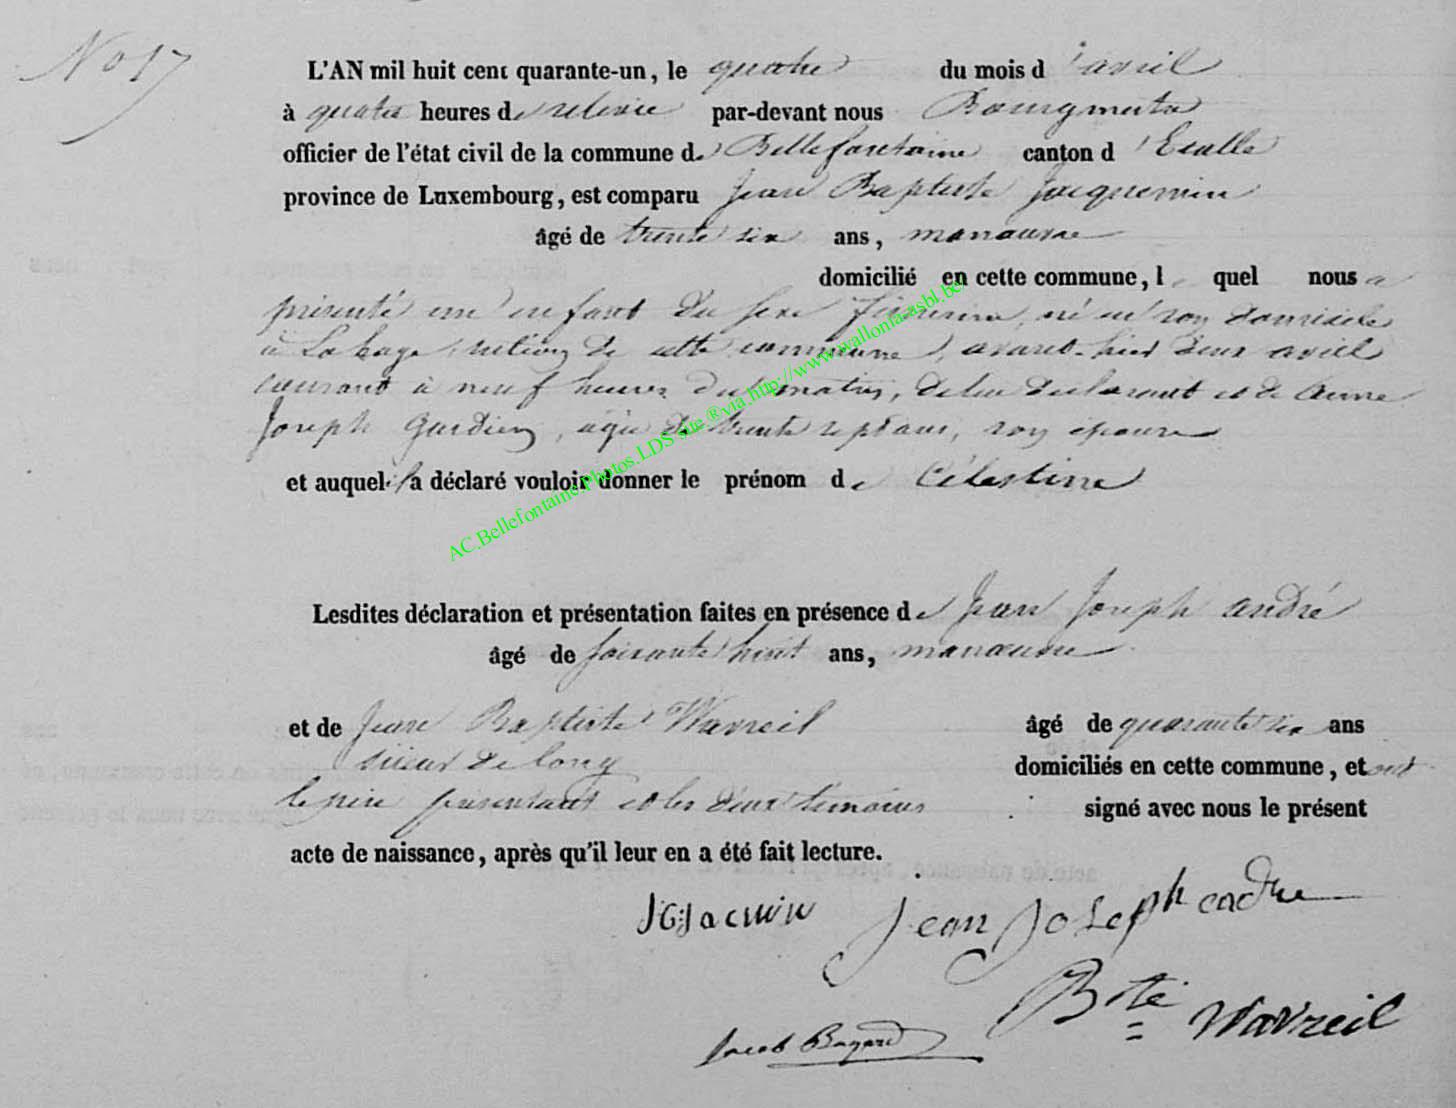 No 17
L'AN mil huit cent quarante-un, le quatre du mois d'avril
à quatre heures de relevée par-devant nous Bourgmestre
officier de l'état civil de la commune de Bellefontaine canton d'Etalle
province de Luxembourg, est comparu Jean Baptiste Jacquemin
âgé de trente six ans, manœuvre
domicilié en cette commune, lequel nous a
présenté un enfant du sexe féminin, né en son domicile
à Lahage, section de cette commune, avant-hier deux avril
courant à neuf heures du matin, de lui déclarant et de Anne
Joseph Gardien, agée de trente sept ans, son épouse
et auquel il a déclaré vouloir donner le prénom de Célestine
AC.Bellefontaine.Photos.LDS site ®via http://www.wallonia-asbl.be
Lesdites déclaration et présentation faites en présence de Jean Joseph André
âgé de soixante huit ans, manœuvre
et de Jean Baptiste Wavreil âgé de quarante six ans
scieur de long domiciliés en cette commune, et ont
le père présentant et les deux témoins signé avec nous le présent
acte de naissance, après qu'il leur en a été fait lecture.
Jean Joseph
Bte Wavreil
Jacob Bayard